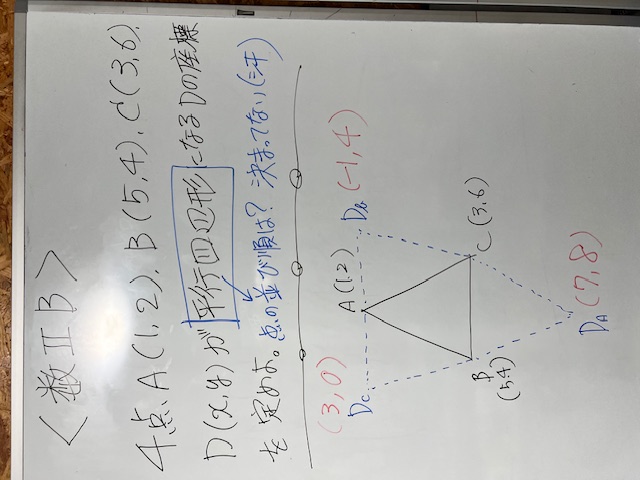 <数ⅡB>
4点、A(1,2)、B(5,4)、C(3,6)、
D(x,y)が平行四辺形になるDの座標
を定めよ。点の並び順は?決まってない(三汗
(3,0)
(-1,4)
D_C
A(1,2)
D_B
B
(5,4)
C(3,6)
D_A
(7,8)